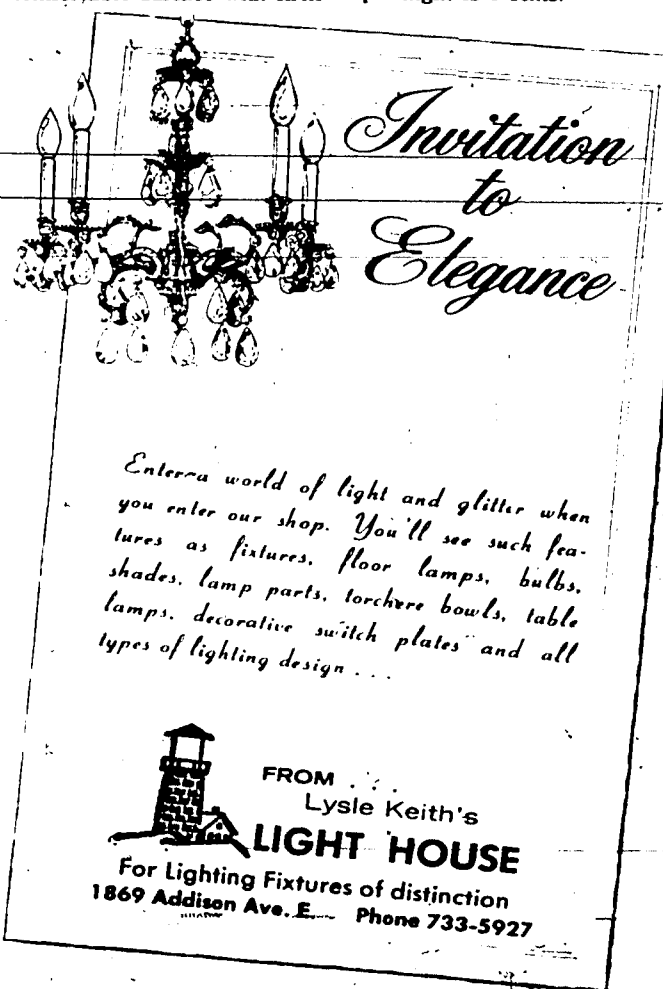 Invitation
to
Elegance
Enter a world of light and glitter when
you enter our shop. You'll see such fea-
tures as fixtures, floor lamps, bulbs,
shades, lamp parts, torchere bowls, table
lamps, decorative switch plates and all
types of lighting design . . .
FROM . . .
Lysle Keith's
LIGHT HOUSE
For Lighting Fixtures of distinction
1869 Addison Ave. E. Phone 733-5927